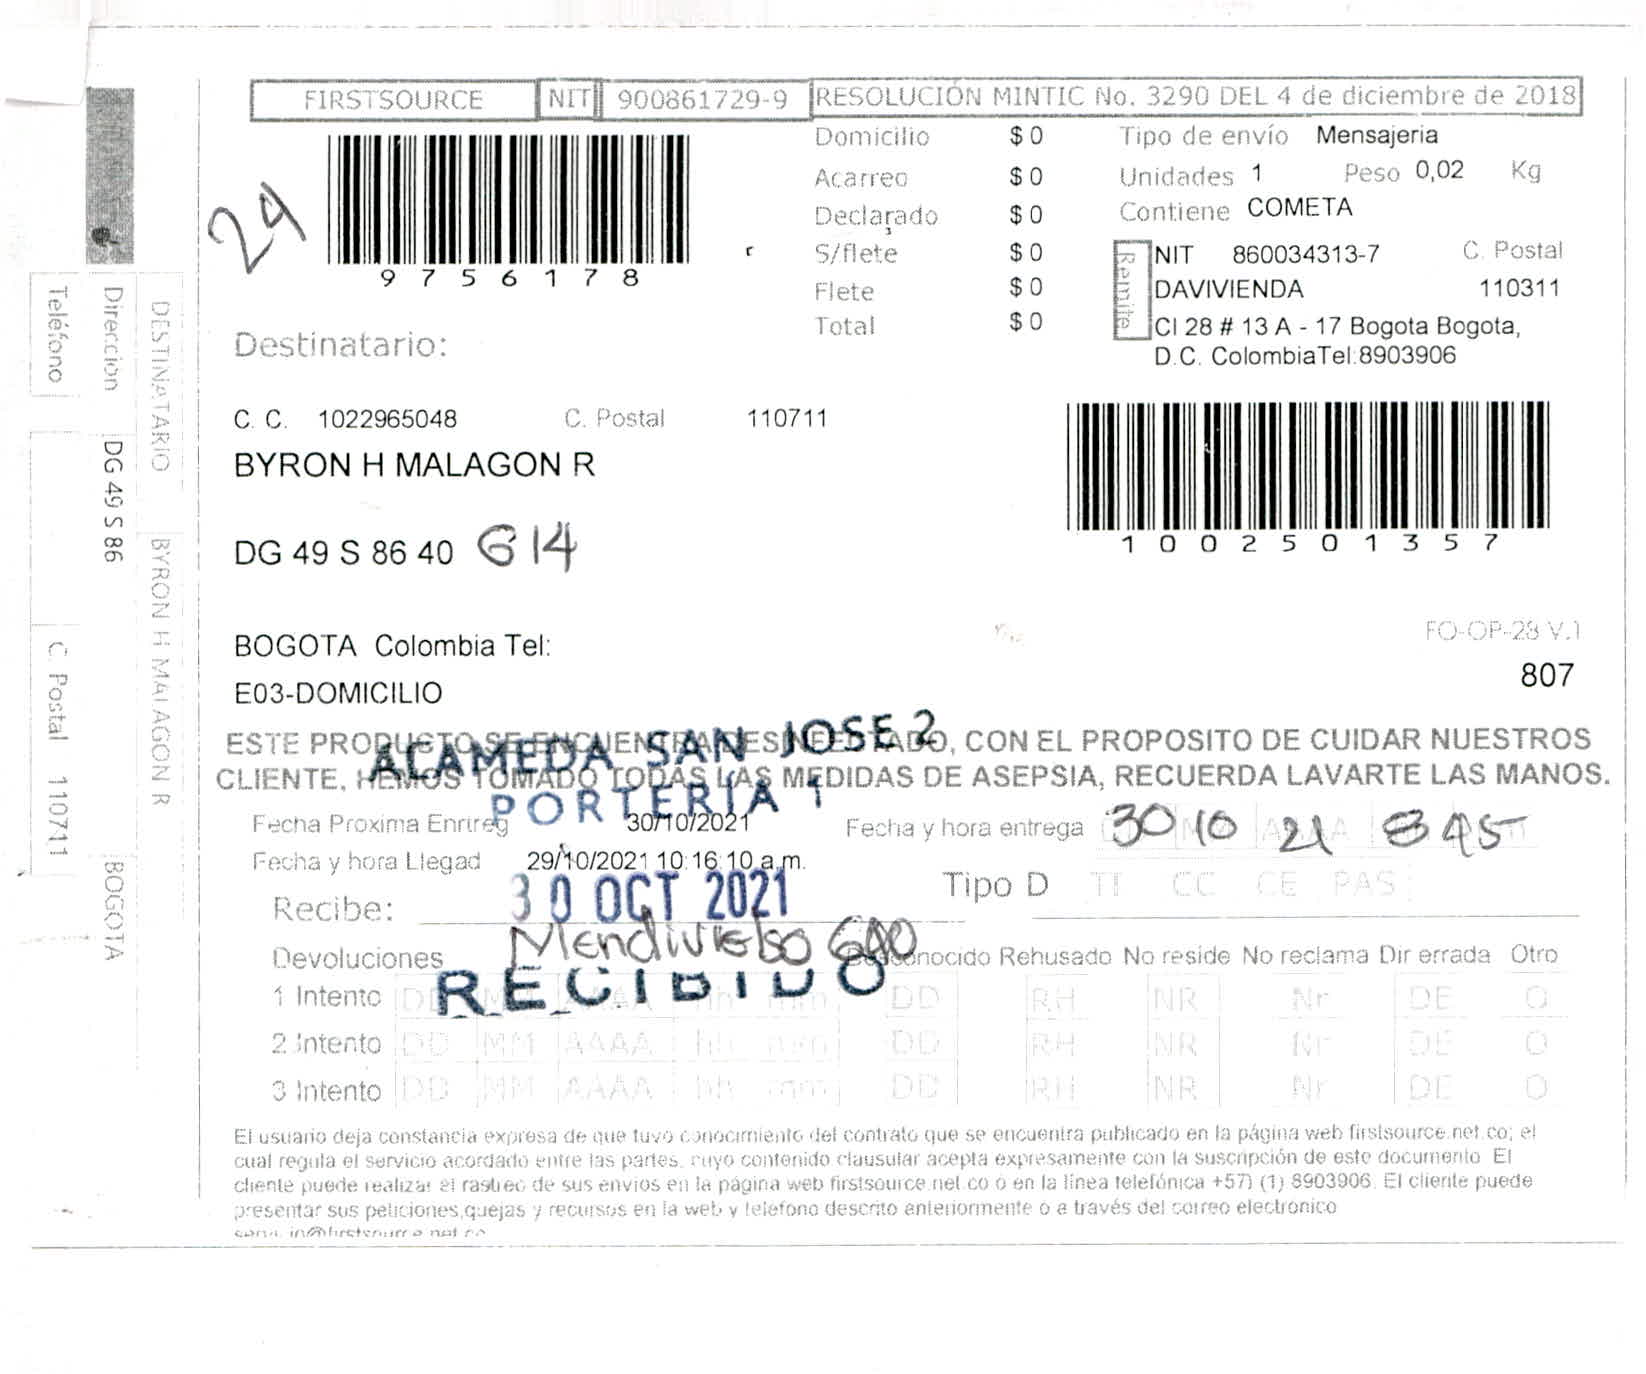 FIRSTSOURCE NIT 900861729-9 RESOLUCIÓN MINTIC No. 3290 DEL 4 de diciembre de 2018
24
9756178
Domicilio $ 0
Acarreo $ 0
Declarado $ 0
S/flete $ 0
Flete $ 0
Total $ 0
Tipo de envío Mensajeria
Unidades 1 Peso 0,02 Kg
Contiene COMETA
Remite
NIT 860034313-7 C. Postal
DAVIVIENDA 110311
Cl 28 # 13 A - 17 Bogota Bogota,
D.C. ColombiaTel:8903906
Destinatario:
C. C. 1022965048 C. Postal 110711
BYRON H MALAGON R
DG 49 S 86 40 G 14
1002501357
BOGOTA Colombia Tel:
E03-DOMICILIO
FO-OP-28 V.1
807
ESTE PRODUCTO SE ENCUENTRA DESINFECTADO, CON EL PROPOSITO DE CUIDAR NUESTROS
CLIENTE, HEMOS TOMADO TODAS LAS MEDIDAS DE ASEPSIA, RECUERDA LAVARTE LAS MANOS.
ALAMEDA SAN JOSE 2
PORTERIA 1
Fecha Proxima Enrtreg 30/10/2021
Fecha y hora entrega 30 10 21 845
Fecha y hora Llegad 29/10/2021 10:16:10 a.m.
Tipo D TI CC CE PAS
30 OCT 2021
Recibe:
Mendivielso
RECIBIDO
Devoluciones Desconocido Rehusado No reside No reclama Dir errada Otro
1 Intento DD MM AAAA hh mm DD RH NR Nr DE O
2 Intento DD MM AAAA hh mm DD RH NR Nr DE O
3 Intento DD MM AAAA hh mm DD RH NR Nr DE O
El usuario deja constancia expresa de que tuvo conocimiento del contrato que se encuentra publicado en la página web firstsource.net.co; el
cual regula el servicio acordado entre las partes, cuyo contenido clausular acepta expresamente con la suscripción de este documento El
cliente puede realizar el rastreo de sus envios en la página web firstsource.net.co o en la linea telefónica +57) (1) 8903906. El cliente puede
presentar sus peticiones,quejas y recursos en la web y telefono descrito anteriormente o a través del correo electronico
DESTINATARIO BYRON H MALAGON R
Dirección DG 49 S 86 BOGOTA
Teléfono C. Postal 110711